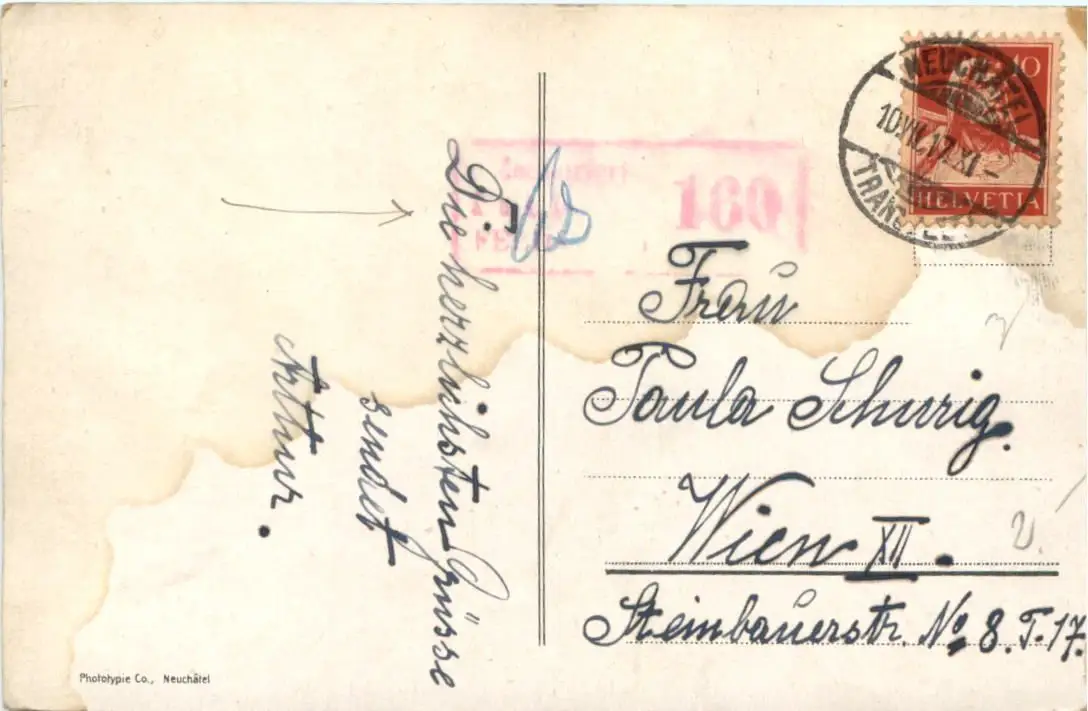 Die herzlichsten Grüsse
sendet
Artur.
Zensuriert
160
10
NEUCHÂTEL
10.VII.17.XI-
HELVETIA
Frau
Paula Schurig.
Wien XII.
Steinbauerstr. No 8. T. 17.
Phototypie Co., Neuchâtel